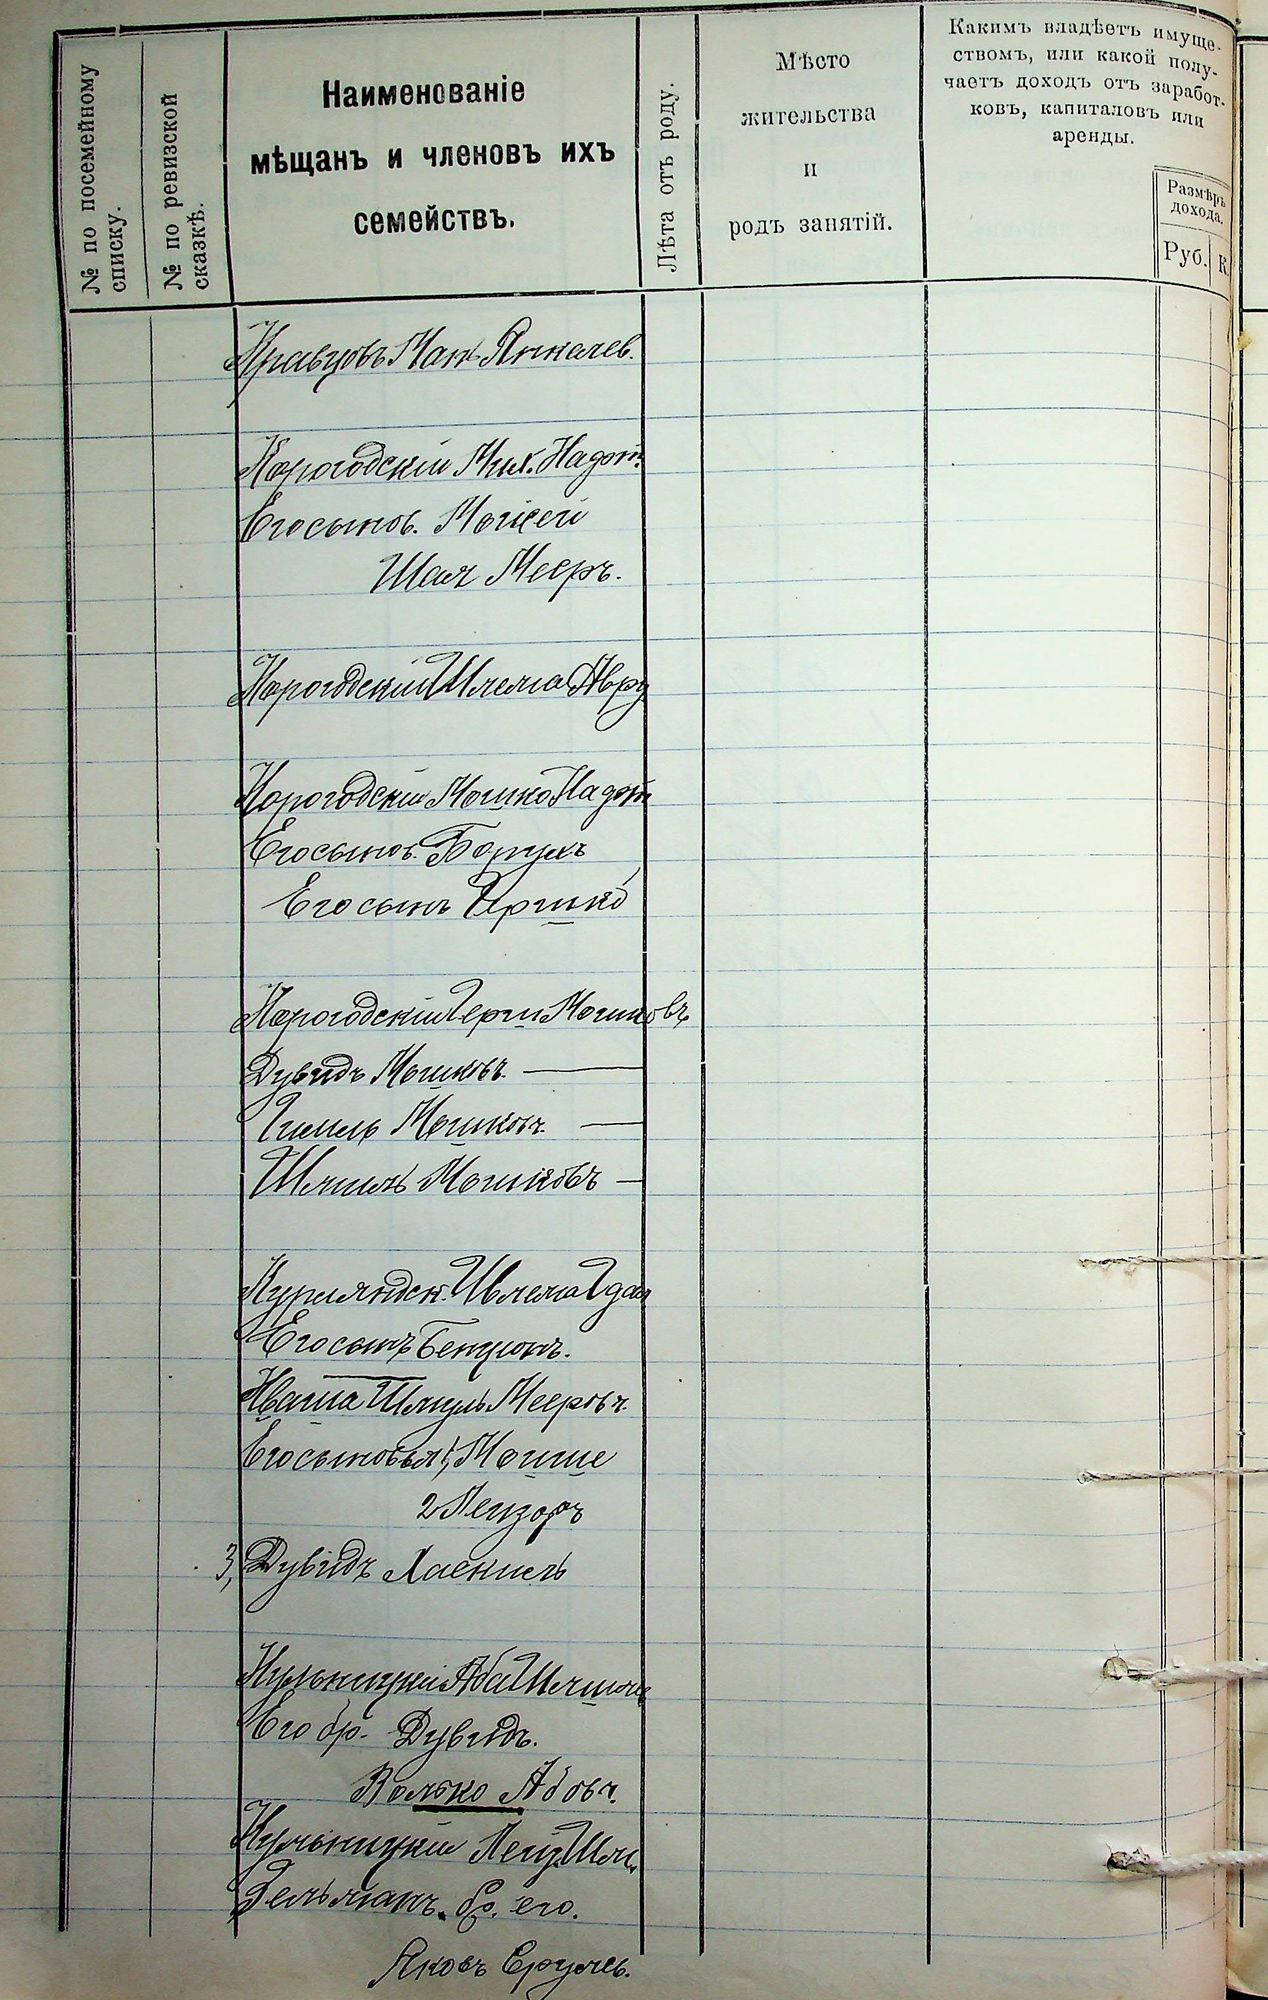 № по посемейному
списку.
№ по ревизской
сказкѣ.
Наименованіе
мѣщанъ и членовъ ихъ
семействъ.
Лѣта отъ роду.
Мѣсто
жительства
и
родъ занятій.
Какимъ владѣетъ имуще-
ствомъ, или какой полу-
чаетъ доходъ отъ заработ-
ковъ, капиталовъ или
аренды.
Размѣръ
дохода.
Руб. К.
Кравцовъ Ман. Янкелев.
Корогодскій Мих. Надот.
Его сынов. Мойсей
Шая Мееръ.
Корогодскій Шлема Авру
Корогодскій Мошко Надот
Его сынов. Борухъ
Его сынъ Гершко
Корогодскій Герш Мошковъ
Дувидъ Мошковъ —
Мошков. —
Шліома Мошковъ —
Курляндск. Шлема
Его сынъ Бенціонъ.
Кваша Шмуль Мееров.
Его сыновья 1, Мошше
2 Лейзоръ
3, Дувидъ Хаскиль
Кульницкій Аба
Его бр. Дувидъ.
Волько Абов.
Кульницкій Лейз. Шл.
Зельманъ. бр. его.
Яковъ Срулев.